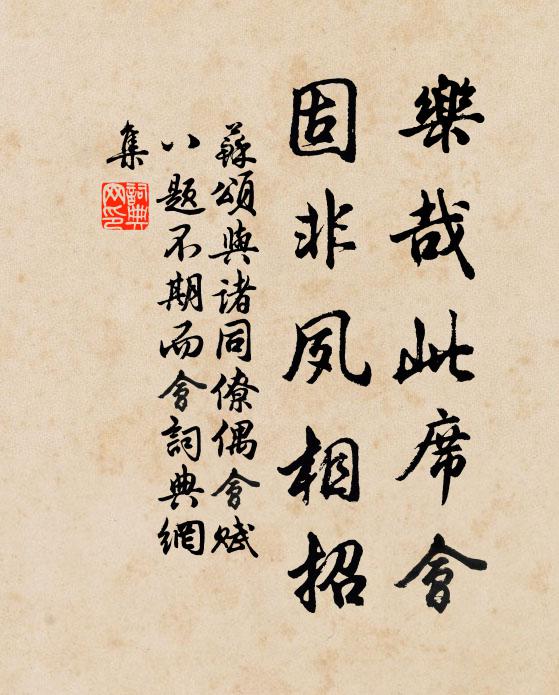 樂哉此席會
固非夙相招
蘇頌與諸同僚偶會賦
八題不期而會詞典網
集
詞典網印